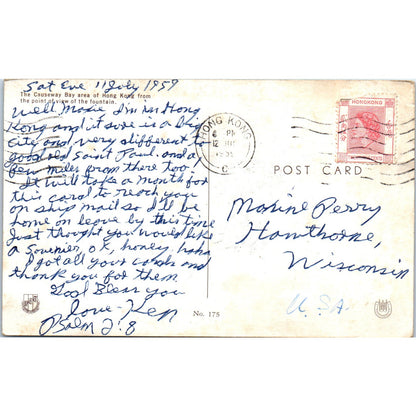 Sat Eve 11 July 1959
The Causeway Bay area of Hong Kong from
the point of view of the fountain.
Well Maxie I'm in Hong
Kong and it sure is a big
city and very different to
good old Saint Paul. and a
few miles from there too!
It will take a month for
this card to reach you
on ship mail so I'll be
home on leave by this time
Just thought you would like
a Sounier, ok, honey, haha
I got all your cards and
thank you for them
God Bless you
love - Ken
Psalm 2:8
HONG KONG
6 PM
12
HONGKONG
POST CARD
Maxine Perry
Hawthorne,
Wisconsin
U.S.A.
No. 175